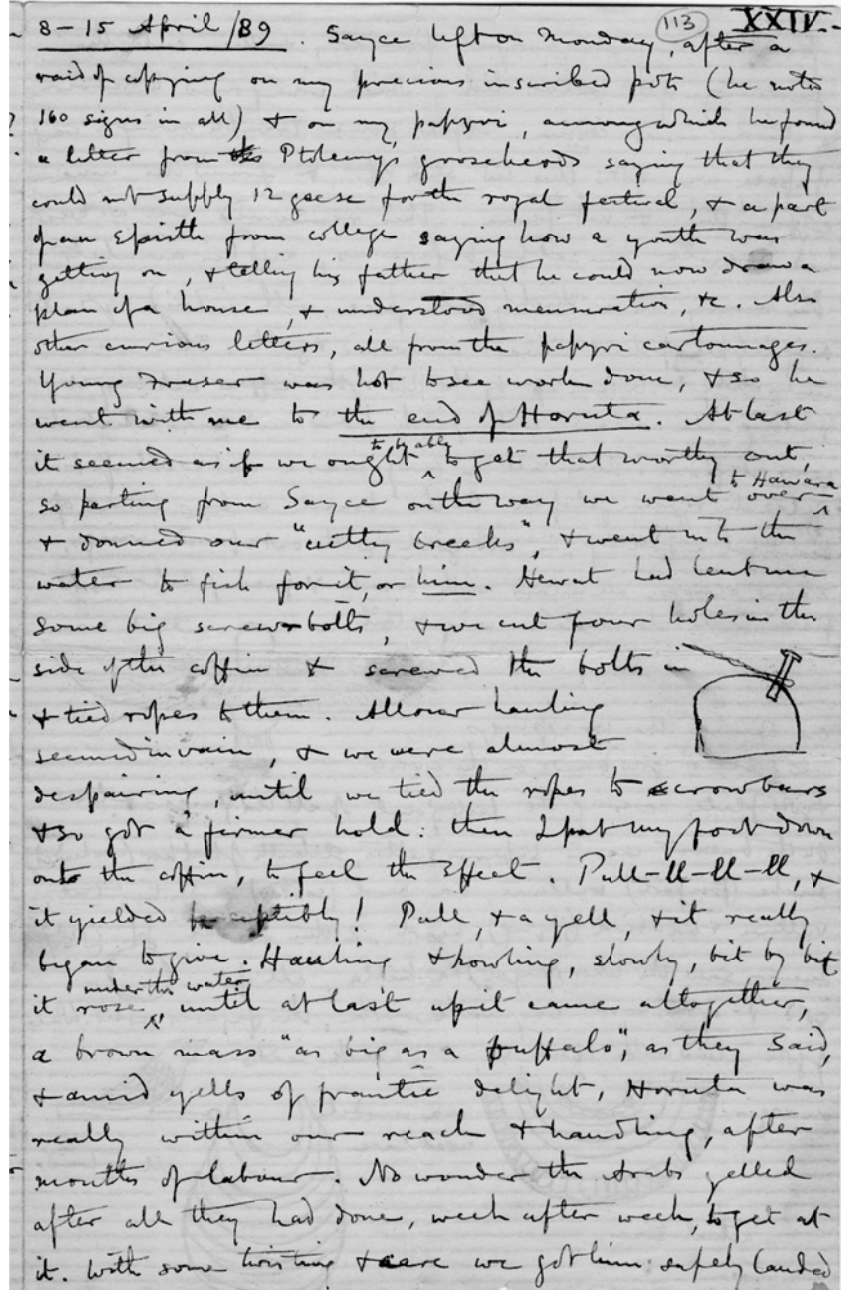 113 XXIV.
8–15 April /89. Sayce left on Monday, after a
raid of copying on my precious inscribed pots (he noted
160 signs in all) & on my papyri, among which he found
a letter from the Ptolemy's gooseherds saying that they
could not supply 12 geese for the royal festival, & a part
of an Epistle from college saying how a youth was
getting on, & telling his father that he could now draw a
plan of a house, & understood mensuration, &c. Also
other curious letters, all from the papyri cartonnages.
Young Fraser was hot to see work done, & so he
went with me to the end of Horuta. At last
it seemed as if we ought to be able to get that worthy out,
so parting from Sayce on the way we went over to Hawara
& donned our "cutty breeks", & went into the
water to fish for it, or him. Hewat had lent me
some big screw-bolts, & we cut four holes in the
side of the coffin & screwed the bolts in
& tied ropes to them. All our hauling
seemed in vain, & we were almost
despairing, until we tied the ropes to crowbars
& so got a firmer hold: then I put my foot down
onto the coffin, to feel the Effect. Pull-ll-ll-ll, &
it yielded perceptibly! Pull, & a yell, & it really
began to give. Hauling & howling, slowly, bit by bit
it rose under the water, until at last up it came altogether,
a brown mass "as big as a buffalo", as they said,
& amid yells of frantic delight, Horuta was
really within our reach & handling, after
months of labour. No wonder the Arabs yelled
after all they had done, week after week, to get at
it. With some twisting & care we got him safely landed